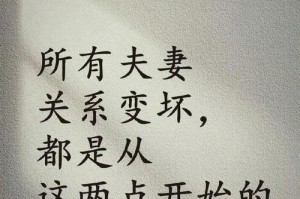 所有夫妻
关系变坏，
都是从
这两点开始的